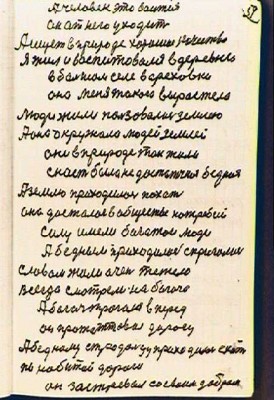 А человек это боится
он от него уходить
А ищет в природе хорошие качества
Я жил и воспитовался в деревне
в большом селе в ореховки
оно меня такого вырастело
Люди жили ползовались землею
А она окружала людей землей
они в природе так жили
снасть была не достаточно бедная
А землю приходилось похать
она досталось в общество
Силу имели богатые люди
А бедным приходилос
словом жили очен тежело
Всегда смотрели на богачо
А богач прогоня в перед
он протоптовал дорогу
А бедному приходилос ехать
по набитой дороги
он застревал со своим добром